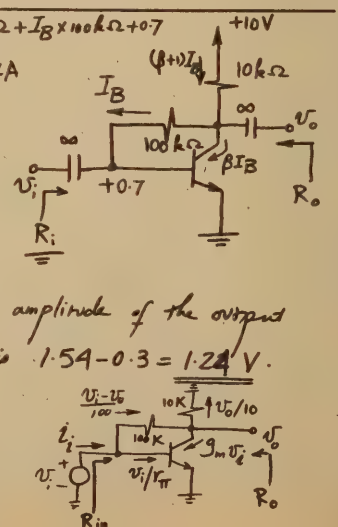 Ω + I_B × 100 kΩ + 0.7
A
+10V
(β+1)I_B
10 kΩ
I_B
100 kΩ
∞
∞
v_o
βI_B
v_i
+0.7
R_o
R_i
amplitude of the output
1.54 - 0.3 = 1.24 V.
v_i - v_o
100
10K
v_o/10
i_i
100K
v_o
g_m v_i
v_i
+
-
v_i/r_π
R_o
R_in